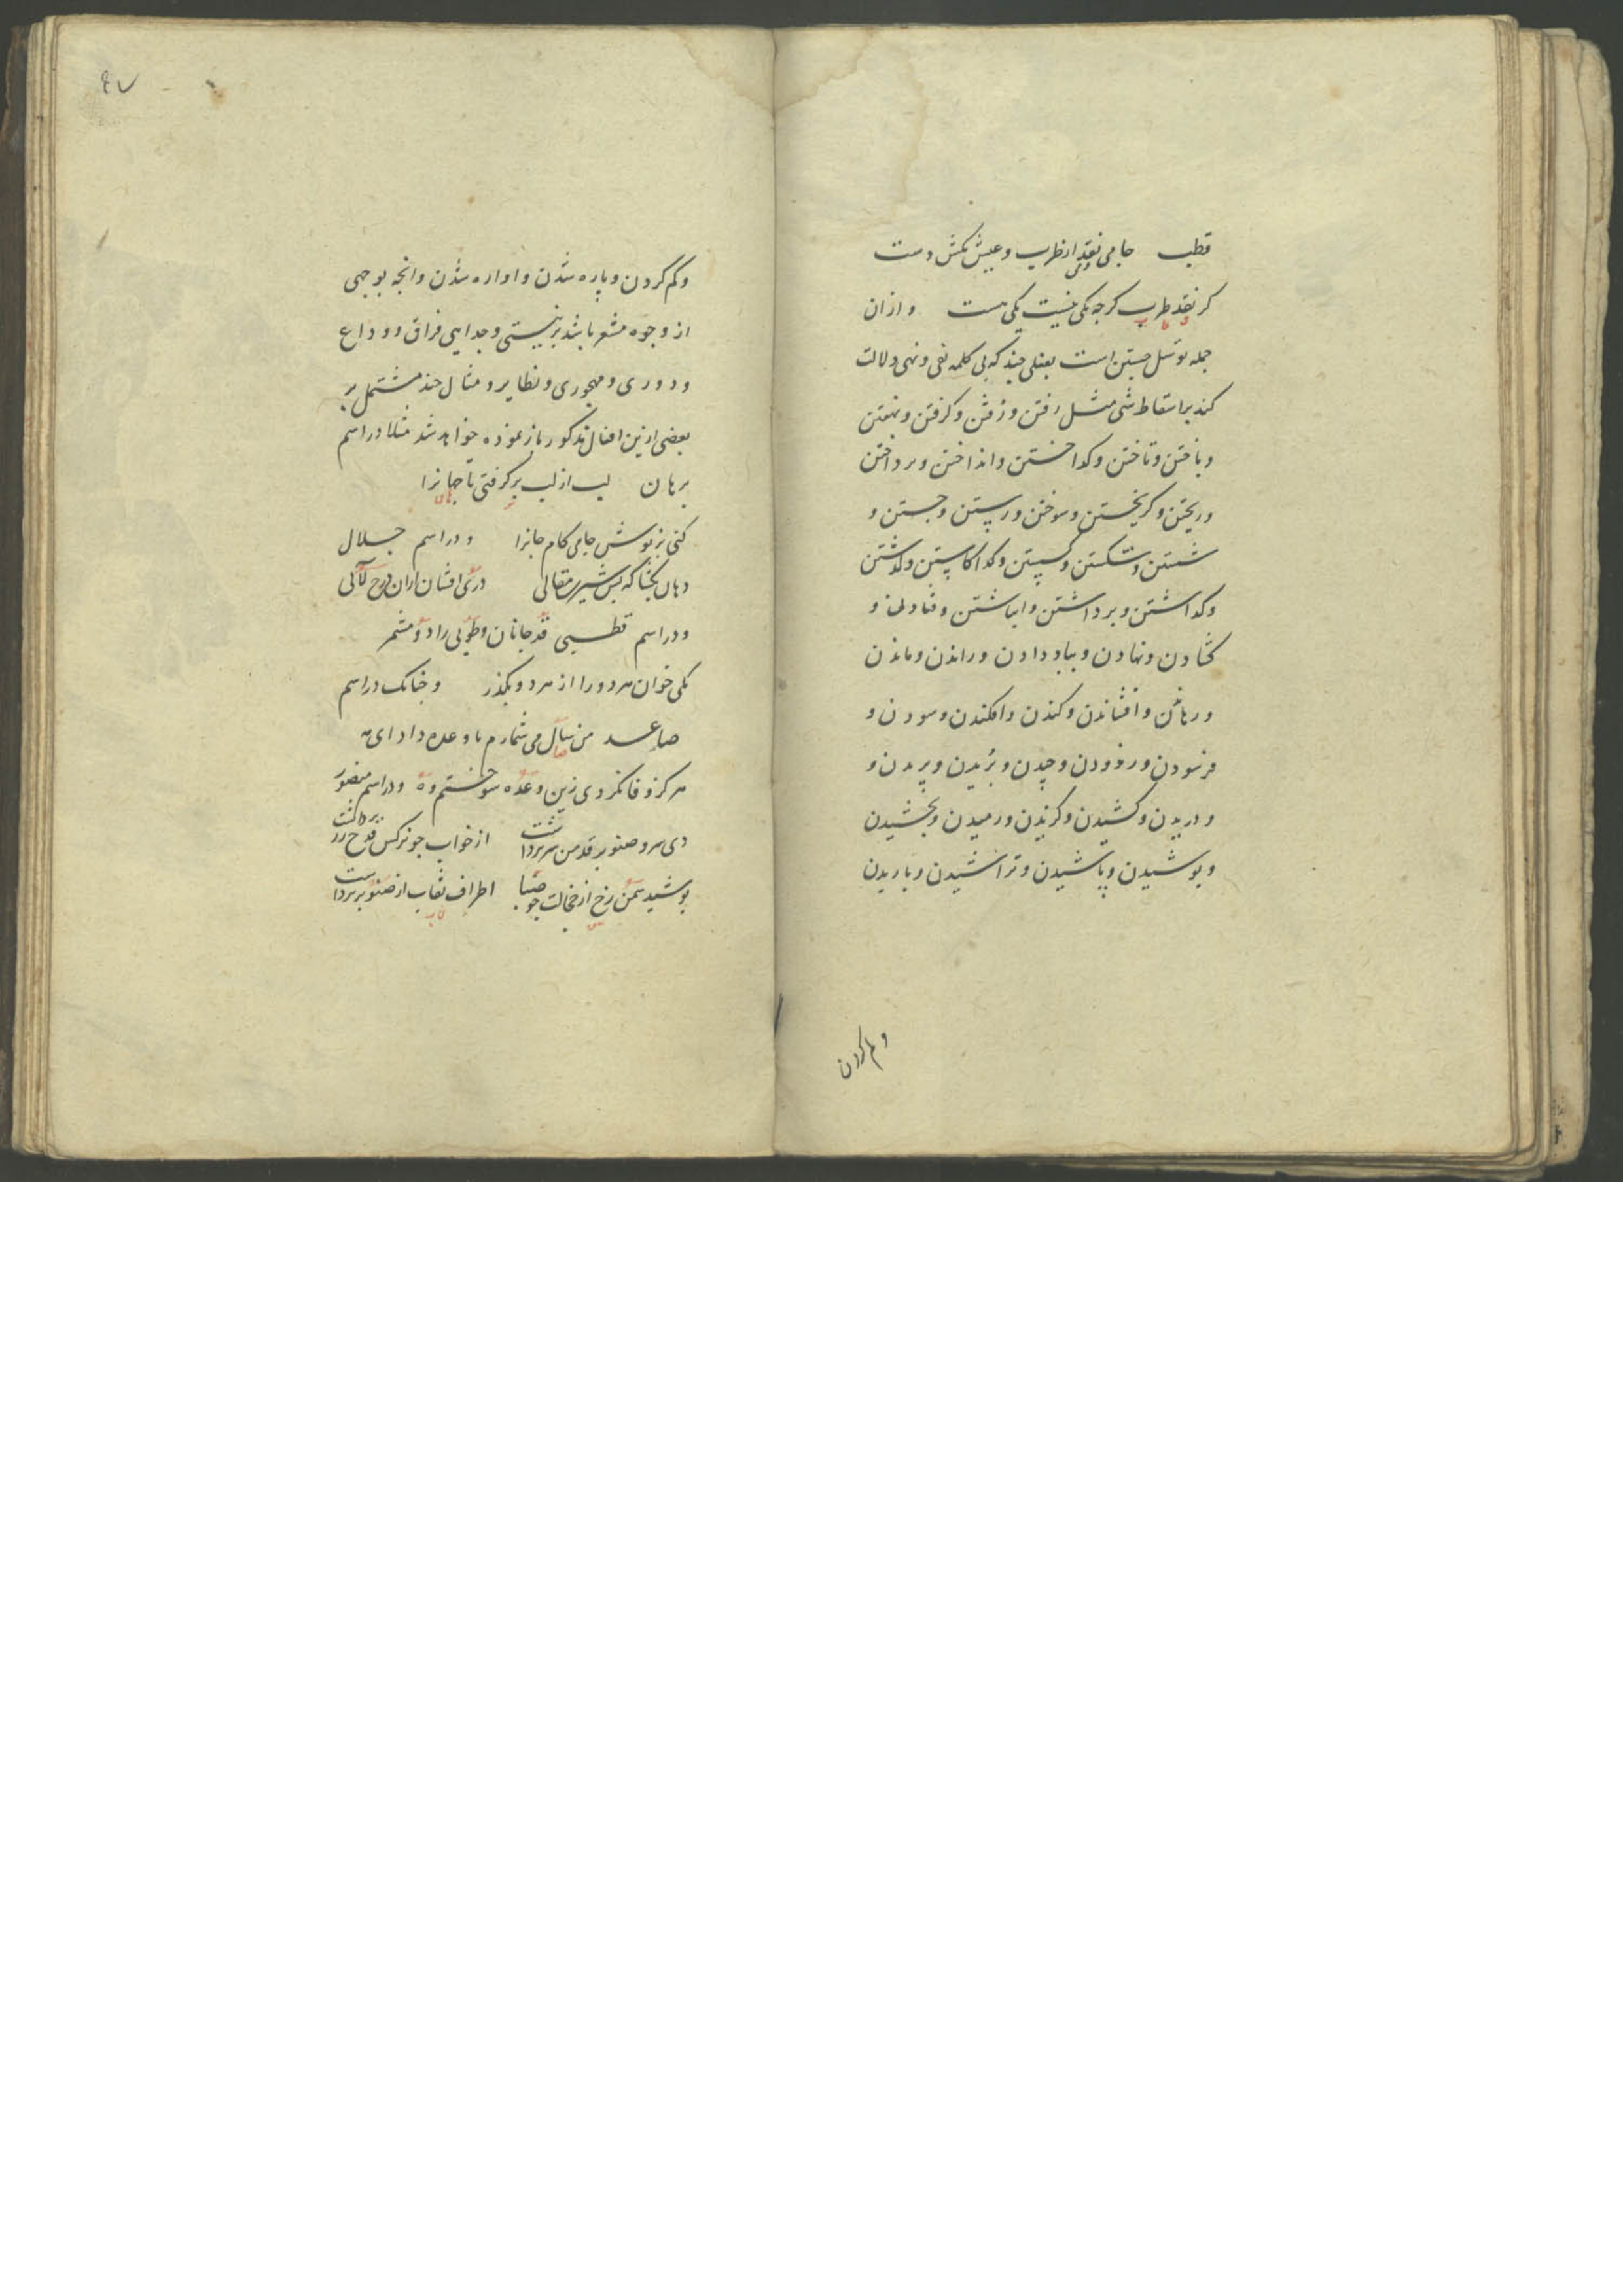 قطب جامی نقد از طرب و عیش مکش دست
کر نقد طرب کرجه یکی نیست یکی هست و ازان
جمله توسل جستن است بفعلی چند که بی کلمه نفی و نهی دلالت
کند بر اسقاط شی مثل رفتن و رفتن و کرفتن و نهفتن
و باختن و تاختن و کداختن و انداختن و برداختن
و ریختن و کریختن و سوختن و رستن و جستن و
شستن و شکستن و کسستن و کاستن و کذشتن
و کداشتن و برداشتن و انباشتن و فتادن و
کشادن و نهادن و بباد دادن و راندن و ماندن
و رهاندن و افشاندن و کندن و افکندن و سودن و
فرسودن و زدودن و چیدن و بریدن و پریدن و
و دریدن و کشیدن و کزیدن و رمیدن و بخشیدن
و پوشیدن و پاشیدن و تراشیدن و باریدن
و کم کردن
۶۷
و کم کردن و پاره شدن و اواره شدن و انجه بوجهی
از وجوه مشعر باشد بر نیستی و جدایی فراق و وداع
و دوری و مهجوری و نظایر و مثال چند مشتمل بر
بعضی ازین افعال مذکور باز نموده خواهد شد مثلا در اسم
برهان لب از لب برکرفتی تا جهانرا
کنی پر نوش جامی کام جانرا و در اسم جلال
دهان بکشا که بس شیرین مقالی دری افشان ازان درج لآلی
و در اسم قطبی قد جانان و طوبی را دو مشمر
یکی خوان هر دو را از هر دو بکذر و جنانک در اسم
صاعد من سال می شمارم تا وعده داد ای مه
هرکز وفا نکردی زین وعده سوختم وه و در اسم منصور
دی سرو صنوبر قد من سر برداشت از خواب جو نرکس قدح زر برداشت
پوشید سمن رخ از خجالت جو صبا اطراف نقاب از صنوبر برداشت